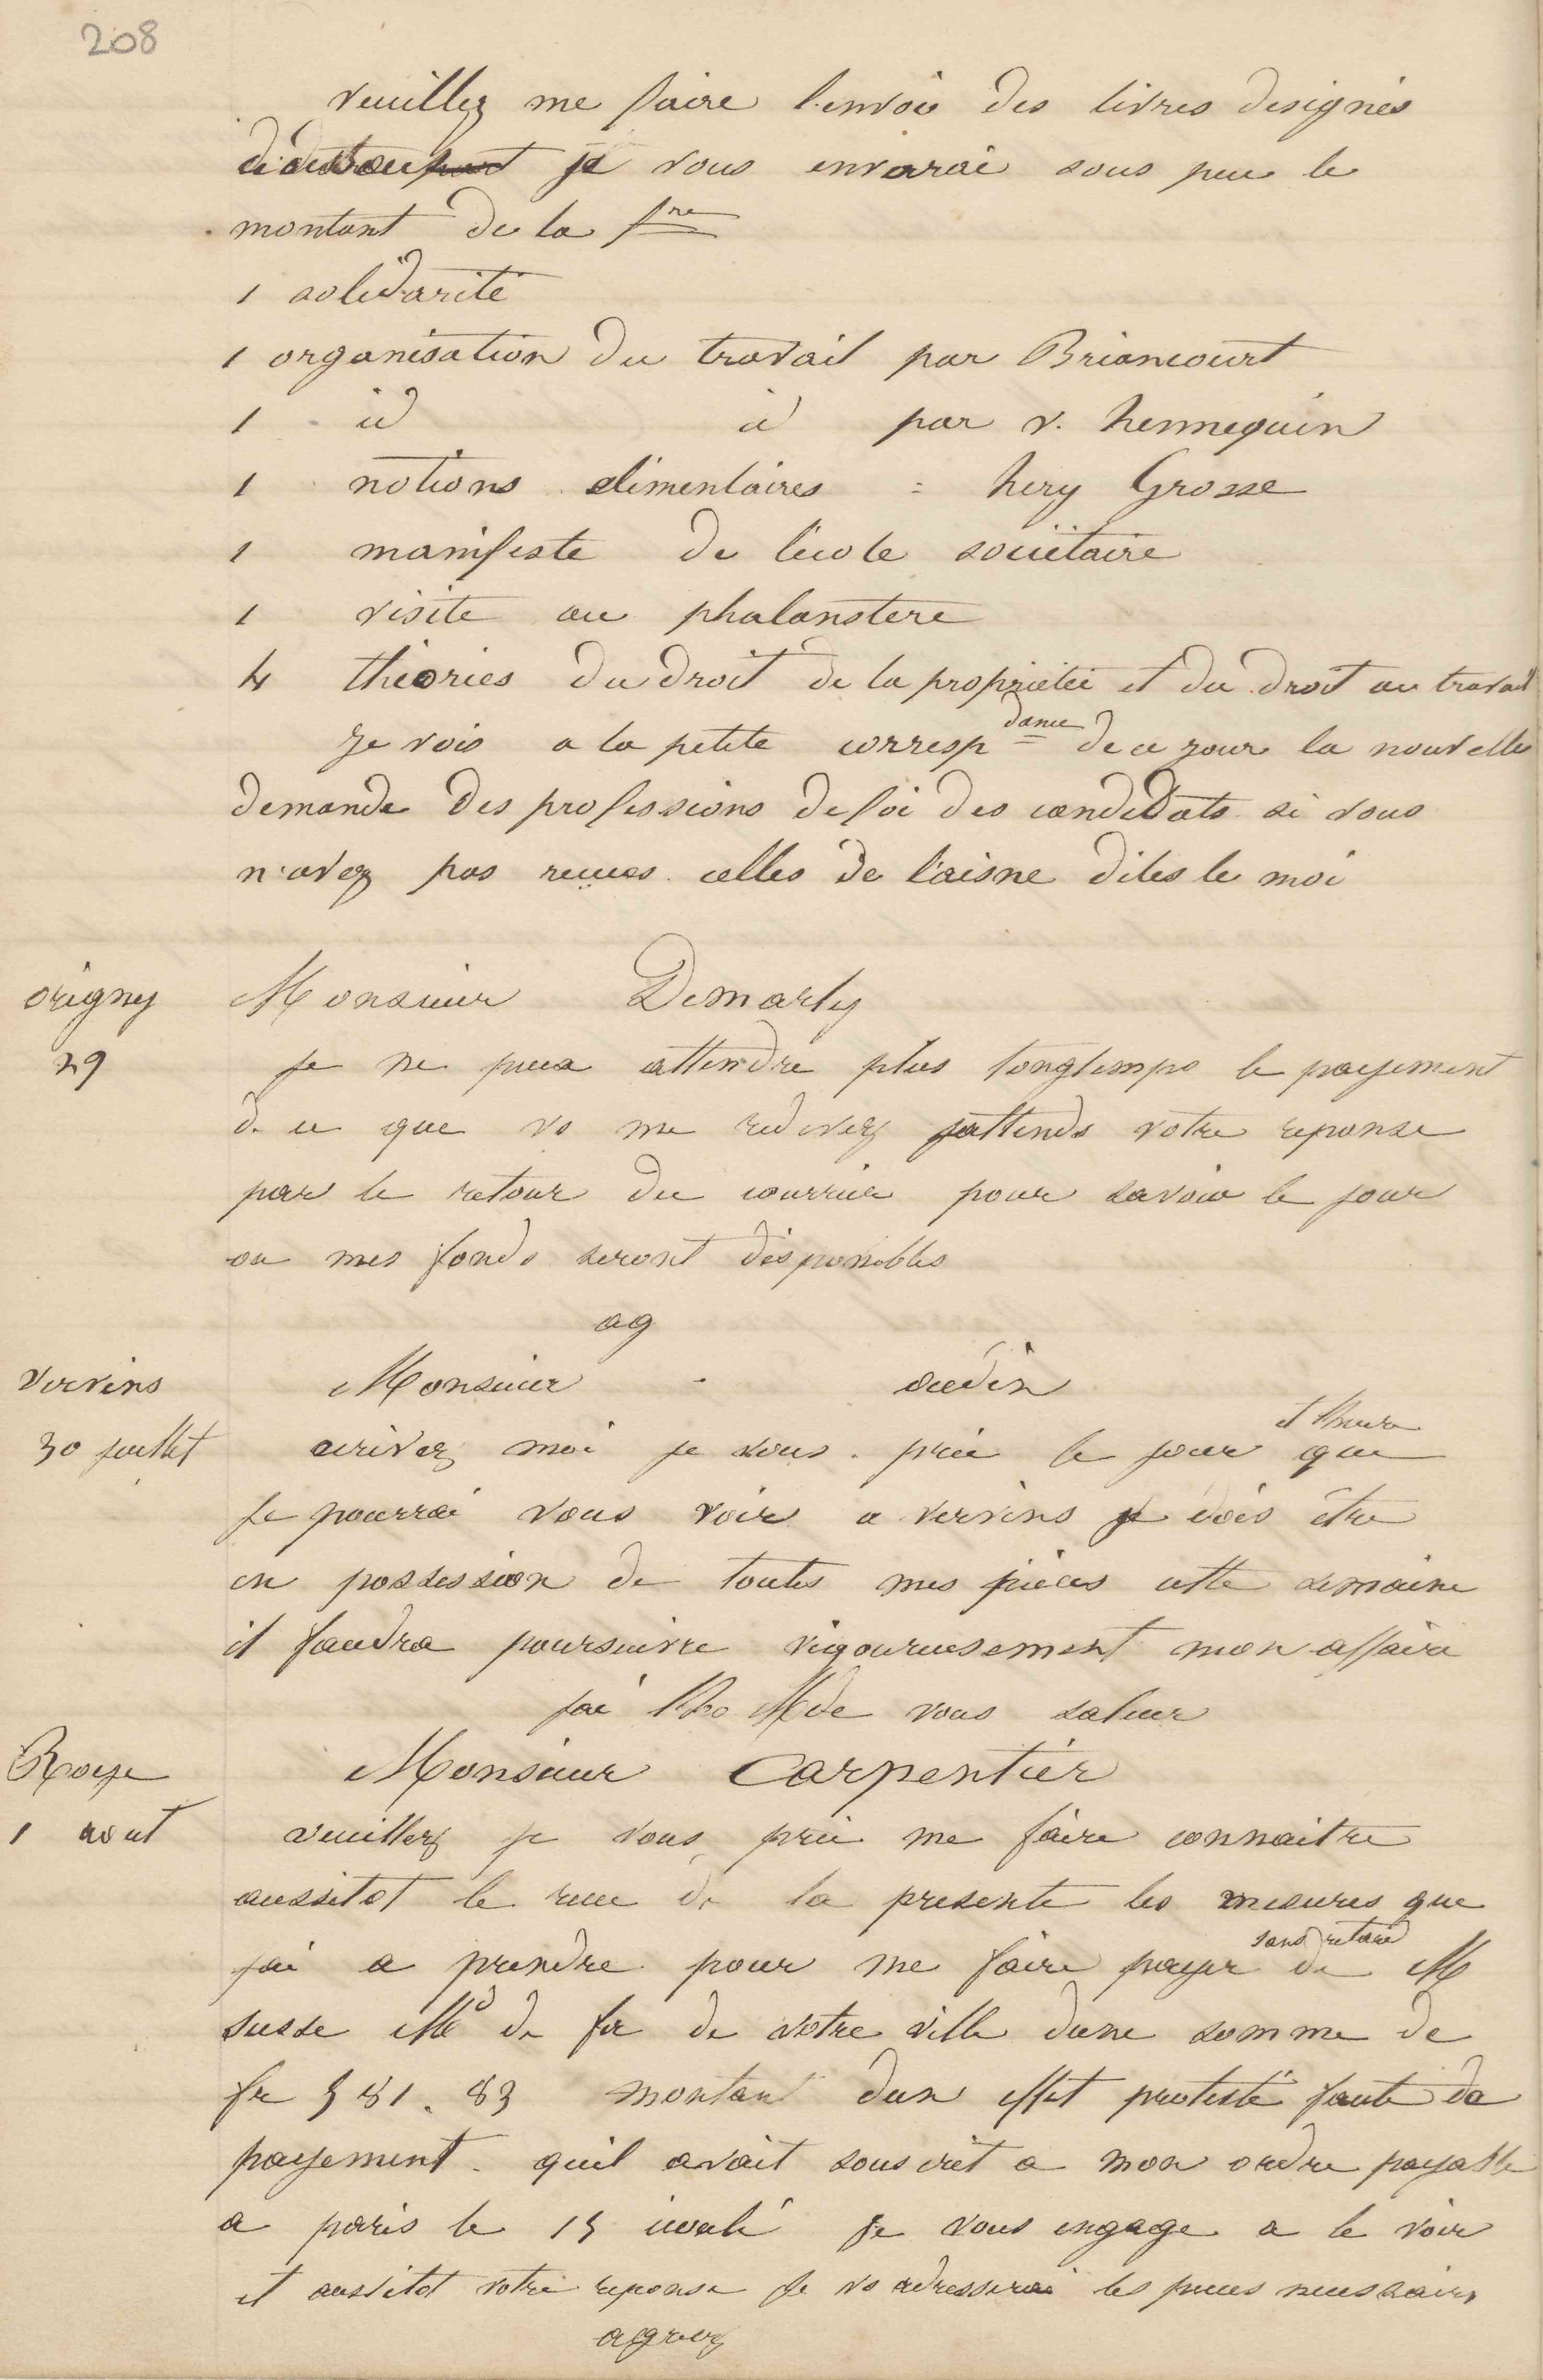 208
veuillez me faire l'envoi des livres designés
je vous enverai sous peu le
montant de la fre
1 solidarité
1 organisation du travail par Briancourt
1 id id par v. hennequin
1 notions elimentaires = hery Grosse
1 manifeste de lécole sociétaire
1 visite au phalanstere
4 théories du droit de la propriétée et du droit au travail
Je vois a la petite correspdance de ce jour la nouvelle
demande des professions de foi des candidats si vous
n'avez pas recues celles de l'aisne dites le moi
origny Monsieur Demarly
29 je ne peux attendre plus longtemps le payement
de ce que vs me redevez jattends votre reponse
par le retour du courrier pour savoir le jour
ou mes fonds seront disponibles
ag
Vervins Monsieur oudin
30 juillet ecrivez moi je vous prie le jour et lheure que
je pourrai vous voir a vervins je dois être
en possession de toutes mes pièces cette semaine
il faudra poursuivre vigoureusement mon affaire
jai lho de vous saluer
Roye Monsieur Carpentier
1 aout veuillez je vous prie me faire connaitre
aussitot le recu de la presente les mesures que
jai a prendre pour me faire payer sans retard de M
susse Md de fer de votre ville dune somme de
fr 581. 83 montant dun effet protesté faute de
payement quil avait souscrit a mon ordre payable
a paris le 15 écoulé je vous engage a le voir
et aussitot votre reponse je vs adresserai les pieces necessaires
agreez